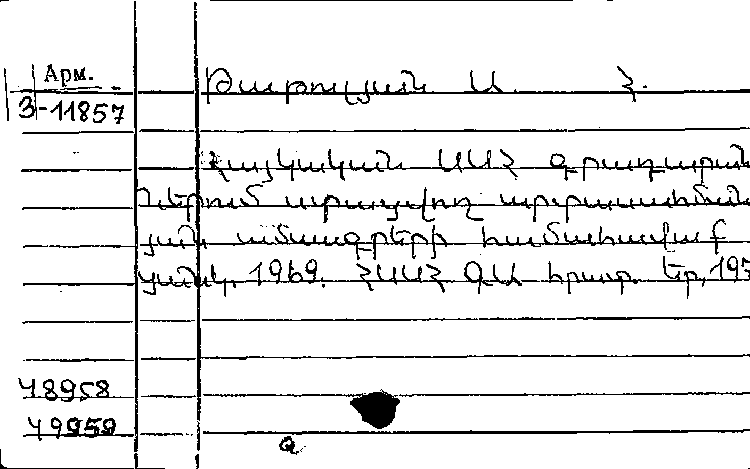 Арм.
3-11857
Թաթուլյան Ա. Հ.
Հայկական ՍՍՀ գրադարան
ներում ստացվող արտասահման
յան ամսագրերի համահավաք
ցանկ. 1969. ՀՍՍՀ ԳԱ հրատ. Եր, 195
48958
49959